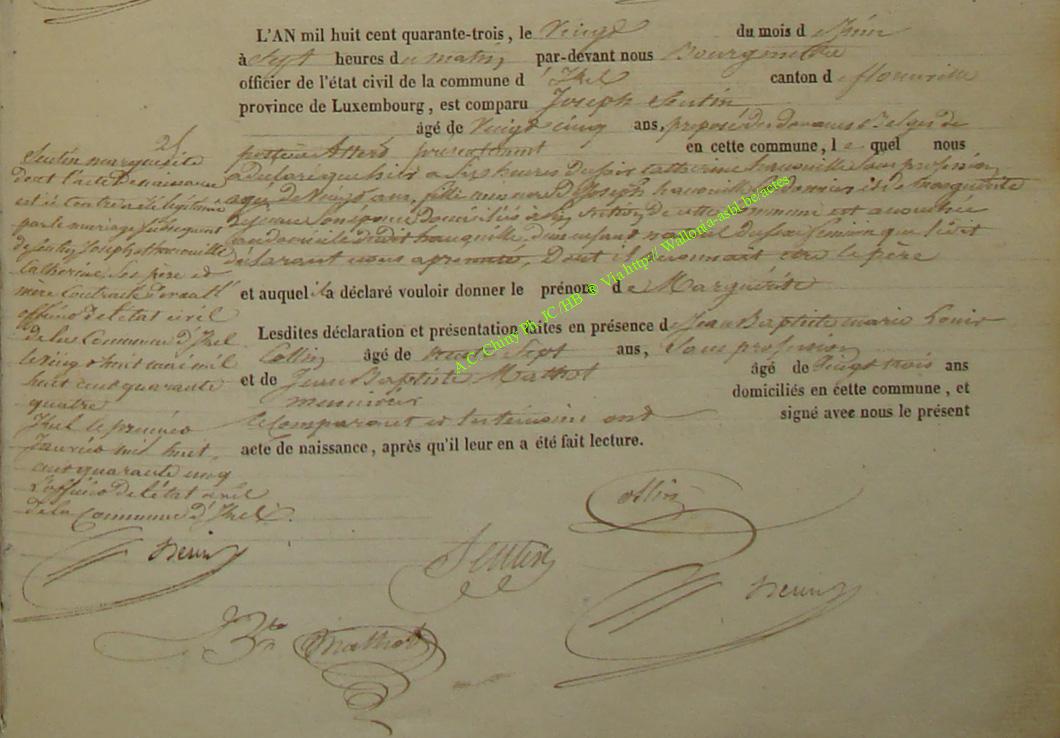 L'AN mil huit cent quarante-trois, le Vingt du mois d e Juin
à Sept heures d u matin, par-devant nous Bourgmestre
officier de l'état civil de la commune d' Izel canton d e florenville
province de Luxembourg, est comparu Joseph Sentin,
âgé de Vingt cinq ans, préposé des douanes Belges de
en cette commune, l e quel nous
a déclaré que hier a Six heures du soir Catherine sans profession
agée de Vingt ans, fille mineure de Joseph et de Marguerite
son épouse domiciliés a Section de cette commune est accouchée
au domicile dudit d'un enfant naturel du sexe féminin que ledit
déclarant nous a presenté, Dont il reconnait être le père
et auquel il a déclaré vouloir donner le prénom d e Marguérite
Lesdites déclaration et présentation faites en présence de Jean Baptiste marie Louis
Collin âgé de Sept ans, Sans profession
et de Jean Baptiste Mathot âgé de Vingt trois ans
meunier domiciliés en cette commune, et
le Comparant et les témoins ont signé avec nous le présent
acte de naissance, après qu'il leur en a été fait lecture.
25
Sentin marguerite
dont l'acte de naissance
est ci Contre a été légitimée
par le mariage subséquent
de Sentin Joseph et
Catherine, Ses père et
mère Contracté devant l'
officier de l'état civil
de la Commune d'Izel
le Vingt huit mai mil
huit cent quarante
quatre
Izel le premier
Janvier mil huit
cent quarante cinq
L'officier de l'état civil
de la Commune d'Izel.
Collin
Sentin
Bte Mathot
A.C. Chiny Ph. JC/HB © Via http://Wallonia-asbl.be/actes